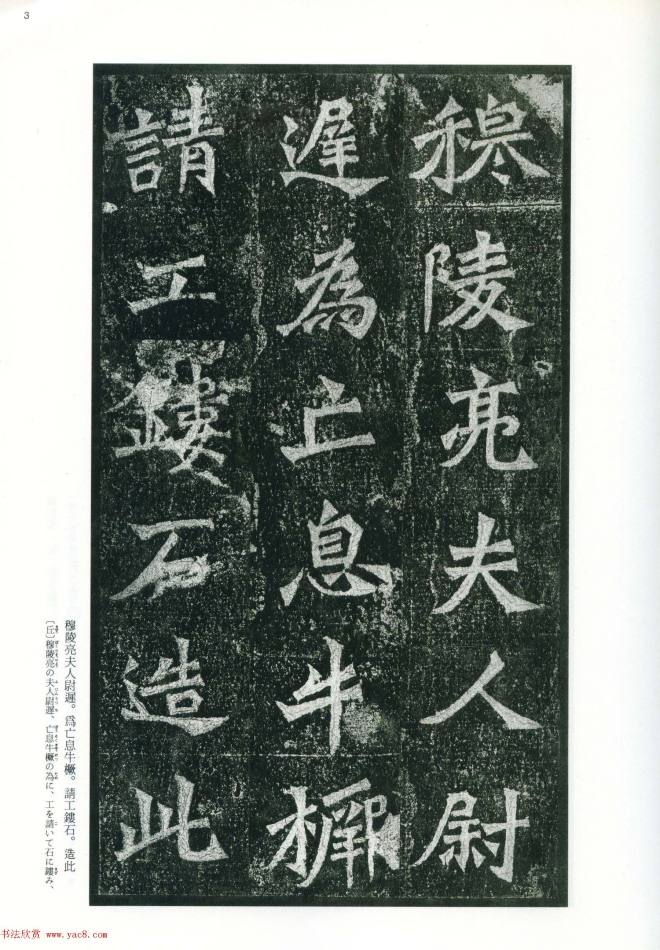 3
穆陵亮夫人尉
遲為亡息牛橛
請工鏤石造此
穆陵亮夫人尉遲。爲亡息牛橛。請工鏤石。造此
〔丘〕穆陵亮の夫人尉遲、亡息牛橛の為に、工を請いて石に鏤み、
书法欣赏 www.yac8.com